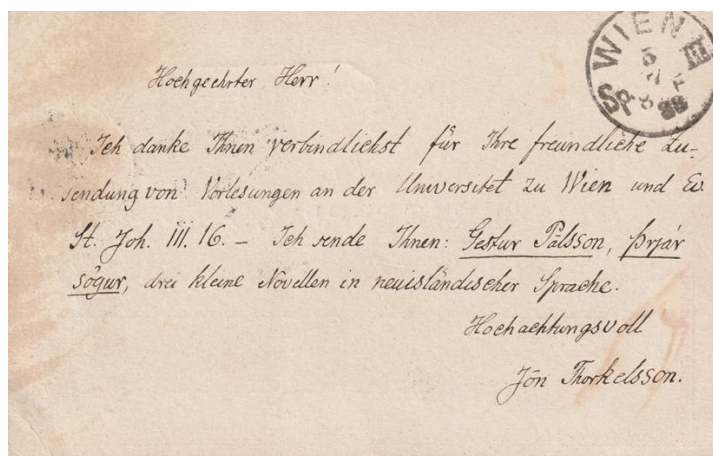 WIEN
III
Hochgeehrter Herr!
Ich danke Ihnen verbindlichst für Ihre freundliche Zu-
sendung von Vorlesungen an der Universitet zu Wien und Ev.
St. Joh. III. 16. – Ich sende Ihnen: Gestur Pálsson, Þrjár
sögur, drei kleine Novellen in neuisländischer Sprache.
Hochachtungsvoll
Jón Thorkelsson.